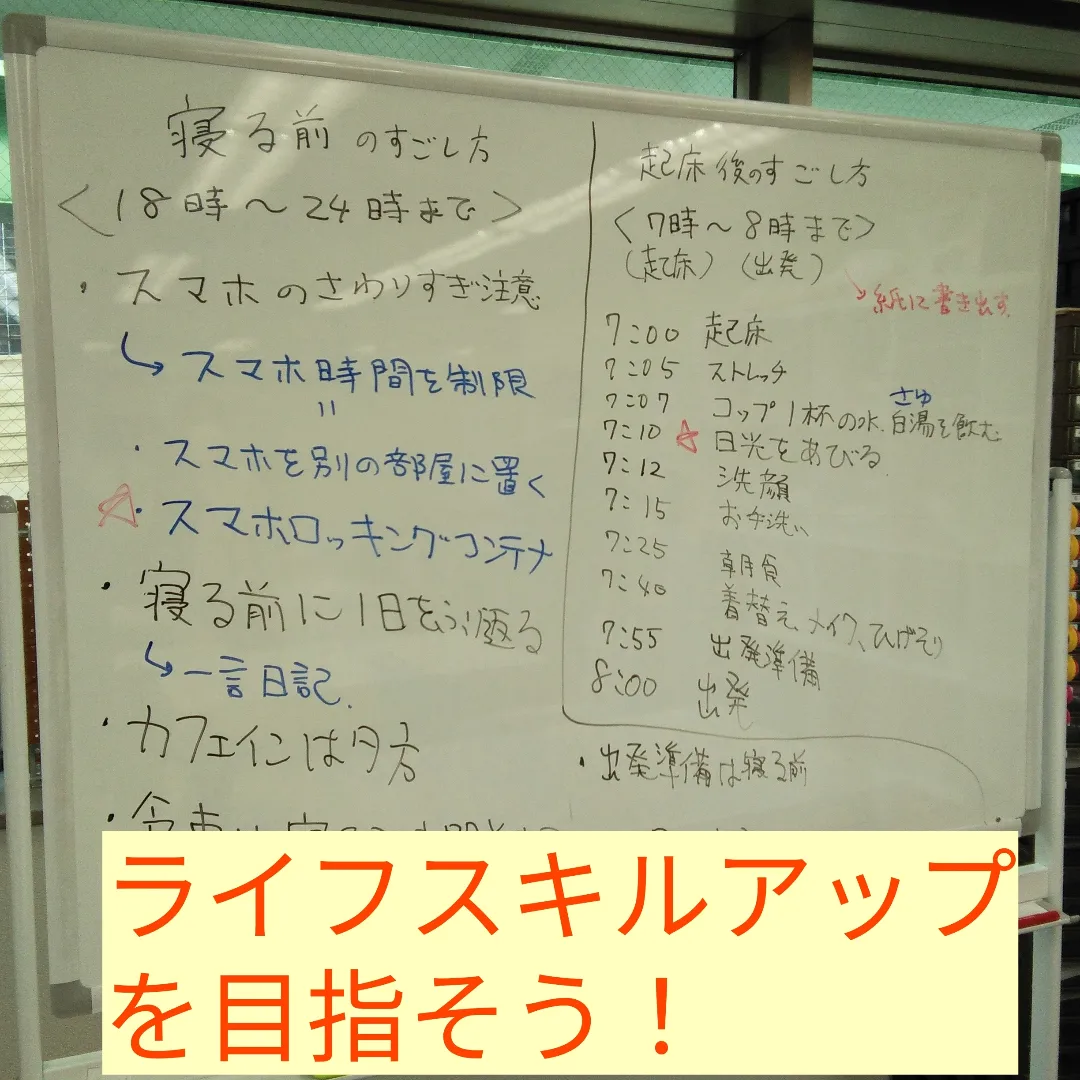 寝る前のすごし方
<18時～24時まで>
・スマホのさわりすぎ注意
↳スマホ時間を制限
〃
・スマホを別の部屋に置く
☆・スマホロッキングコンテナ
・寝る前に1日をふり返る
↳一言日記.
・カフェインは夕方
・食事は寝る
起床後のすごし方
<7時～8時まで>
(起床) (出発)
↘紙に書き出す.
7:00 起床
7:05 ストレッチ
さゆ
7:07 コップ1杯の水.白湯を飲む
7:10 ☆日光をあびる.
7:12 洗顔
7:15 お手洗い
7:25 朝食
7:40 着替え、メイク、ひげそり
7:55 出発準備
8:00 出発
・出発準備は寝る前
ライフスキルアップ
を目指そう！